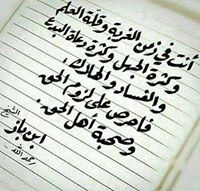 أنت في زمن الغربة وقلة العلم
وكثرة الجهل وكثرة دعاة البدع
والفساد والهلاك،
فاحرص على لزوم الحق
وصحبة أهل الحق.
الشيخ
ابن باز
رحمه الله